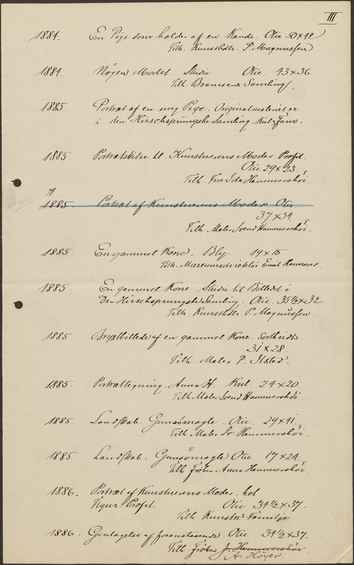 III
1884. En Pige som holder af en Kande. Olie 50×42
Tilh. Kunsthdlr P. Magnussen
1884. Nøgen Model Studie Olie 43×36
Till. Bramsens Samling
1885 Portræt af en ung Pige. Originaltegning
i den Hirschsprungske Samling
1885 Portrætskitse til Kunstnerens Moder Profil.
Olie 29×23
Tilh. Fru Ida Hammershøi
1885 Portræt af Kunstnerens Moder Olie
37×39
Tilh. Maler Svend Hammershøi.
1885 En gammel Kone. Bly. 19×15
Tilh. Emil
1885 En gammel Kone Studie til Billedet i
Den Hirschsprungske Samling. Olie 35½×32
Tilh. Kunsthdlr P. Magnussen
1885 Brystbillede af en gammel Kone
31×28
Tilh. Maler P. Ilsted.
1885. Portrættegning Anna H. Kul 24×20
Tilh. Maler Svend Hammershøi
1885. Landskab. Olie 29×41
Tilh. Maler Sv. Hammershøi.
1885 Landskab. Olie 17×24
Tilh. Frøken Anna Hammershøi
1886. Portræt af Kunstnerens Moder, hel
Figur Profil. Olie 34½×37.
Tilh. Kunstn. Familje
1886. Gentagelse af foranstaaende Olie 34½×37.
Tilh. Frøken Hammershøi